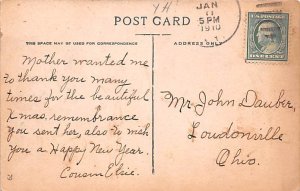 POST CARD
JAN
5 PM
1910
THIS SPACE MAY BE USED FOR CORRESPONDENCE
ADDRESS ONLY
Mother wanted me
to thank you many
times for the beautiful
Xmas, remembrance
you sent her, also to wish
you a Happy New Year.
Cousin Elsie.
Mr. John Dauber,
Loudonville
Ohio.